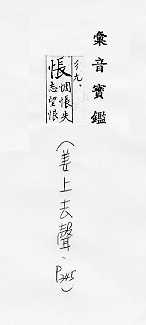 彙音寶鑑
彳九、
悵
惆悵失
志望恨
(姜上去聲、P245)